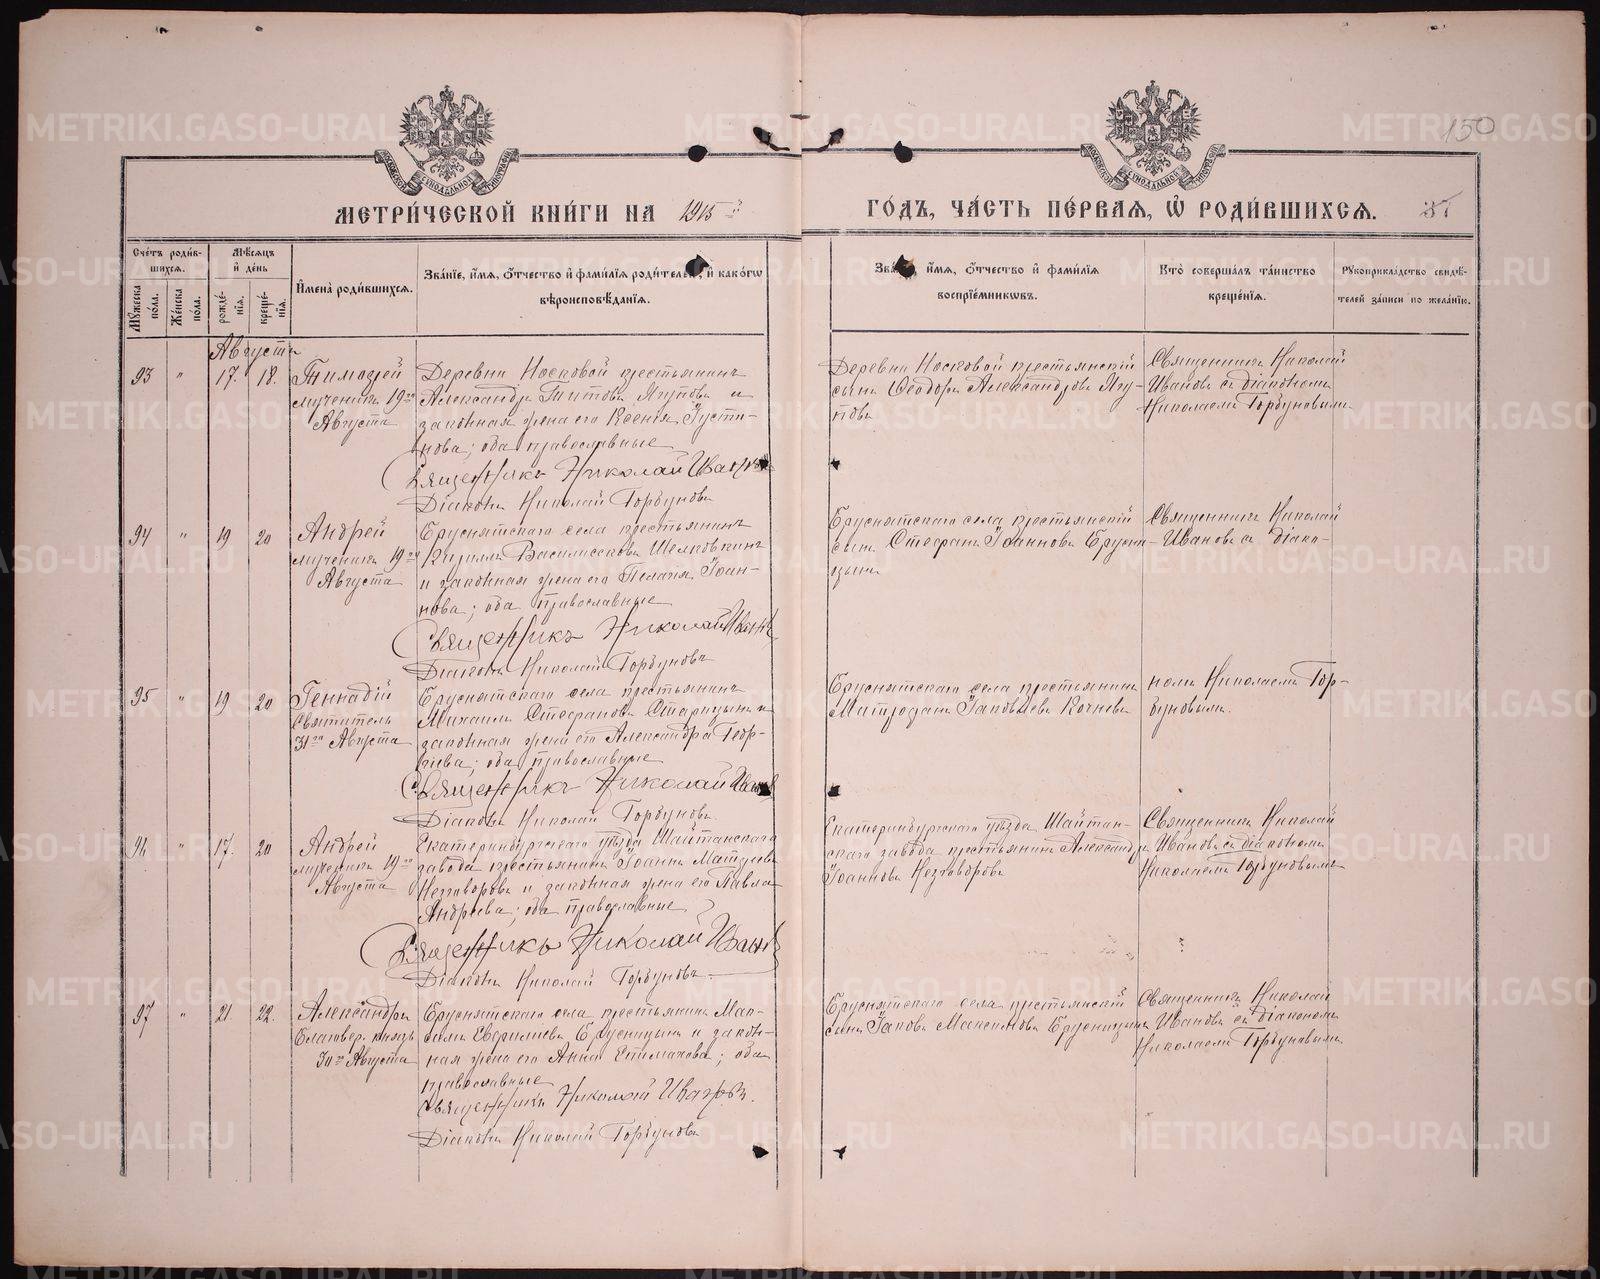 150
МЕТРИЧЕСКОЙ КНИГИ НА 1915й
ГОДЪ, ЧАСТЬ ПЕРВАЯ, Ѡ РОДИВШИХСЯ.
Счетъ родив-
шихся.
Мѣсяцъ
и день
Мужеска
пола.
Женска
пола.
рожде-
нія.
креще-
нія.
Имена родившихся.
Званіе, имя, отчество и фамилія родителей, и какогѡ
вѣроисповѣданія.
Званіе, имя, отчество и фамилія
воспріемниковъ.
Кто совершалъ таинство
крещенія.
Рукоприкладство свидѣ-
телей записи по желанію.
Августа
93 " 17. 18.
Тимофей
мученикъ 19го
Августа
Деревни Носковой крестьянинъ
Александръ Титовъ Ягуповъ и
законная жена его Ксенія Густи-
нова; оба православные
Священникъ Николай Ивановъ
Діаконъ Николай Горбуновъ
Деревни Носковой крестьянскій
сынъ Ѳеодоръ Александровъ Ягу-
повъ
Священникъ Николай
Ивановъ съ діакономъ
Николаемъ Горбуновымъ
94 " 19 20
Андрей
мученикъ 19го
Августа
Бруснятскаго села крестьянинъ
Кириллъ Василисковъ Шелковкинъ
и законная жена его Пелагія Іоан-
нова; оба православные
Священникъ Николай Ивановъ
Діаконъ Николай Горбуновъ
Бруснятскаго села крестьянскій
сынъ Стефанъ Іоанновъ Брусни-
цынъ
Священникъ Николай
Ивановъ съ діако-
95 " 19 20
Геннадій
Святитель
31го Августа
Бруснятскаго села крестьянинъ
Михаилъ Стефановъ Старицынъ и
законная жена его Александра Геор-
гіева; оба православные
Священникъ Николай Ивановъ
Діаконъ Николай Горбуновъ.
Бруснятскаго села крестьянинъ
Митрофанъ Іаковлевъ Кочневъ
номъ Николаемъ Гор-
буновымъ.
96 " 17. 20
Андрей
мученикъ 19го
Августа
Екатеринбургскаго уѣзда Шайтанскаго
завода крестьянинъ Іоаннъ Матѳіевъ
Незговоровъ и законная жена его Павла
Андреева; оба православные
Священникъ Николай Ивановъ
Діаконъ Николай Горбуновъ.
Екатеринбургскаго уѣзда Шайтан-
скаго завода крестьянинъ Александръ
Іоанновъ Незговоровъ
Священникъ Николай
Ивановъ съ діакономъ
Николаемъ Горбуновымъ
97 " 21 22.
Александръ
Благовер. князь
30го Августа
Бруснятскаго села крестьянинъ Мак-
симъ Евфиміевъ Брусницынъ и закон-
ная жена его Анна Епимахова; оба
православные
Священникъ Николай Ивановъ.
Діаконъ Николай Горбуновъ
Бруснятскаго села крестьянскій
сынъ Іаковъ Максимовъ Брусницынъ
Священникъ Николай
Ивановъ съ діакономъ
Николаемъ Горбуновымъ
METRIKI.GASO-URAL.RU